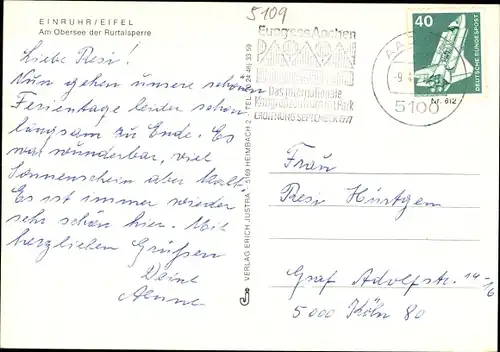 EINRUHR/EIFEL
Am Obersee der Rurtalsperre
Liebe Resi!
Nun gehen unsere schönen
Ferientage leider schon
langsam zu Ende. Es
war wunderbar, viel
Sonnenschein aber kalt.
Es ist immer wieder
sehr schön hier. Mit
herzlichen Grüßen
Deine
Aenne
VERLAG ERICH JUSTRA, 5169 HEIMBACH 2, TEL. 0 24 46/33 59
5109
Eurogress Aachen
Das internationale
Kongreßzentrum im Park
ERÖFFNUNG SEPTEMBER 1977
AA
-9.
5100
40
DEUTSCHE BUNDESPOST
Nr. 612
Frau
Resi Hürtgen
Graf Adolfstr. 14-16
5000 Köln 80